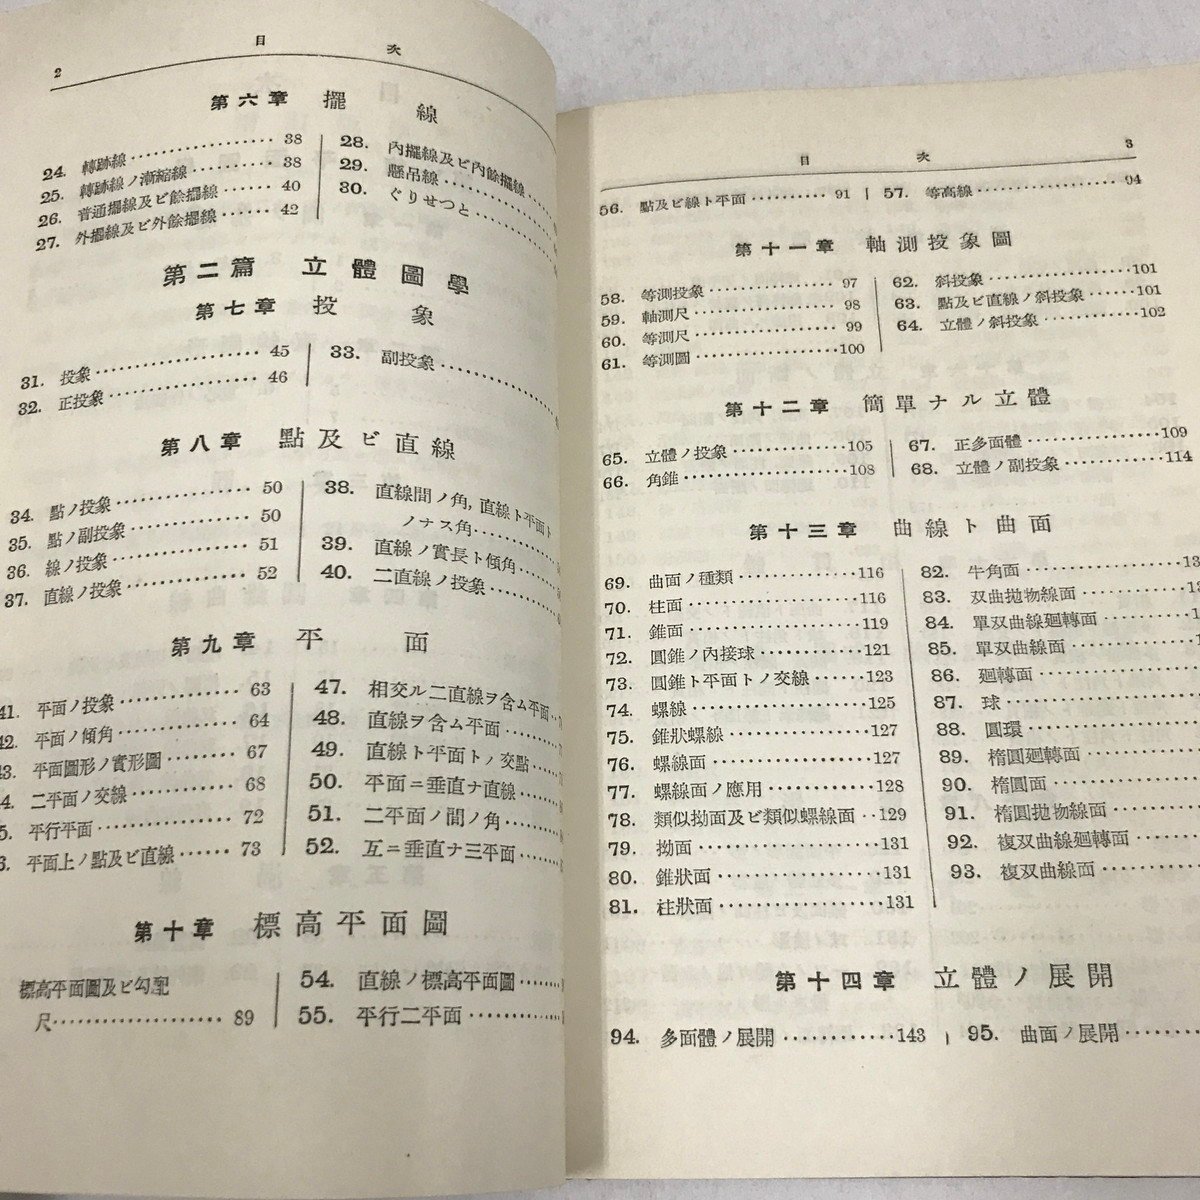 目次
2
第六章 擺線
24. 轉跡線 38
25. 轉跡線ノ漸縮線 38
26. 普通擺線及ビ餘擺線 40
27. 外擺線及ビ外餘擺線 42
28. 內擺線及ビ內餘擺線
29. 懸吊線
30. ぐりせつと
第二篇 立體圖學
第七章 投象
31. 投象 45
32. 正投象 46
33. 副投象
第八章 點及ビ直線
34. 點ノ投象 50
35. 點ノ副投象 50
36. 線ノ投象 51
37. 直線ノ投象 52
38. 直線間ノ角, 直線ト平面ト
ノナス角
39. 直線ノ實長ト傾角
40. 二直線ノ投象
第九章 平面
41. 平面ノ投象 63
42. 平面ノ傾角 64
3. 平面圖形ノ實形圖 67
4. 二平面ノ交線 68
5. 平行平面 72
6. 平面上ノ點及ビ直線 73
47. 相交ル二直線ヲ含ム平面
48. 直線ヲ含ム平面
49. 直線ト平面トノ交點
50. 平面ニ垂直ナ直線
51. 二平面ノ間ノ角
52. 互ニ垂直ナ三平面
第十章 標高平面圖
標高平面圖及ビ勾配
尺 89
54. 直線ノ標高平面圖
55. 平行二平面
目次 3
56. 點及ビ線ト平面 91
57. 等高線 94
第十一章 軸測投象圖
58. 等測投象 97
59. 軸測尺 98
60. 等測尺 99
61. 等測圖 100
62. 斜投象 101
63. 點及ビ直線ノ斜投象 101
64. 立體ノ斜投象 102
第十二章 簡單ナル立體
65. 立體ノ投象 105
66. 角錐 108
67. 正多面體 109
68. 立體ノ副投象 114
第十三章 曲線ト曲面
69. 曲面ノ種類 116
70. 柱面 116
71. 錐面 119
72. 圓錐ノ內接球 121
73. 圓錐ト平面トノ交線 123
74. 螺線 125
75. 錐狀螺線 127
76. 螺線面 127
77. 螺線面ノ應用 128
78. 類似拗面及ビ類似螺線面 129
79. 拗面 131
80. 錐狀面 131
81. 柱狀面 131
82. 牛角面 13
83. 双曲拋物線面 13
84. 單双曲線廻轉面 1
85. 單双曲線面
86. 廻轉面
87. 球
88. 圓環
89. 楕圓廻轉面
90. 楕圓面
91. 楕圓拋物線面
92. 複双曲線廻轉面
93. 複双曲線面
第十四章 立體ノ展開
94. 多面體ノ展開 143
95. 曲面ノ展開